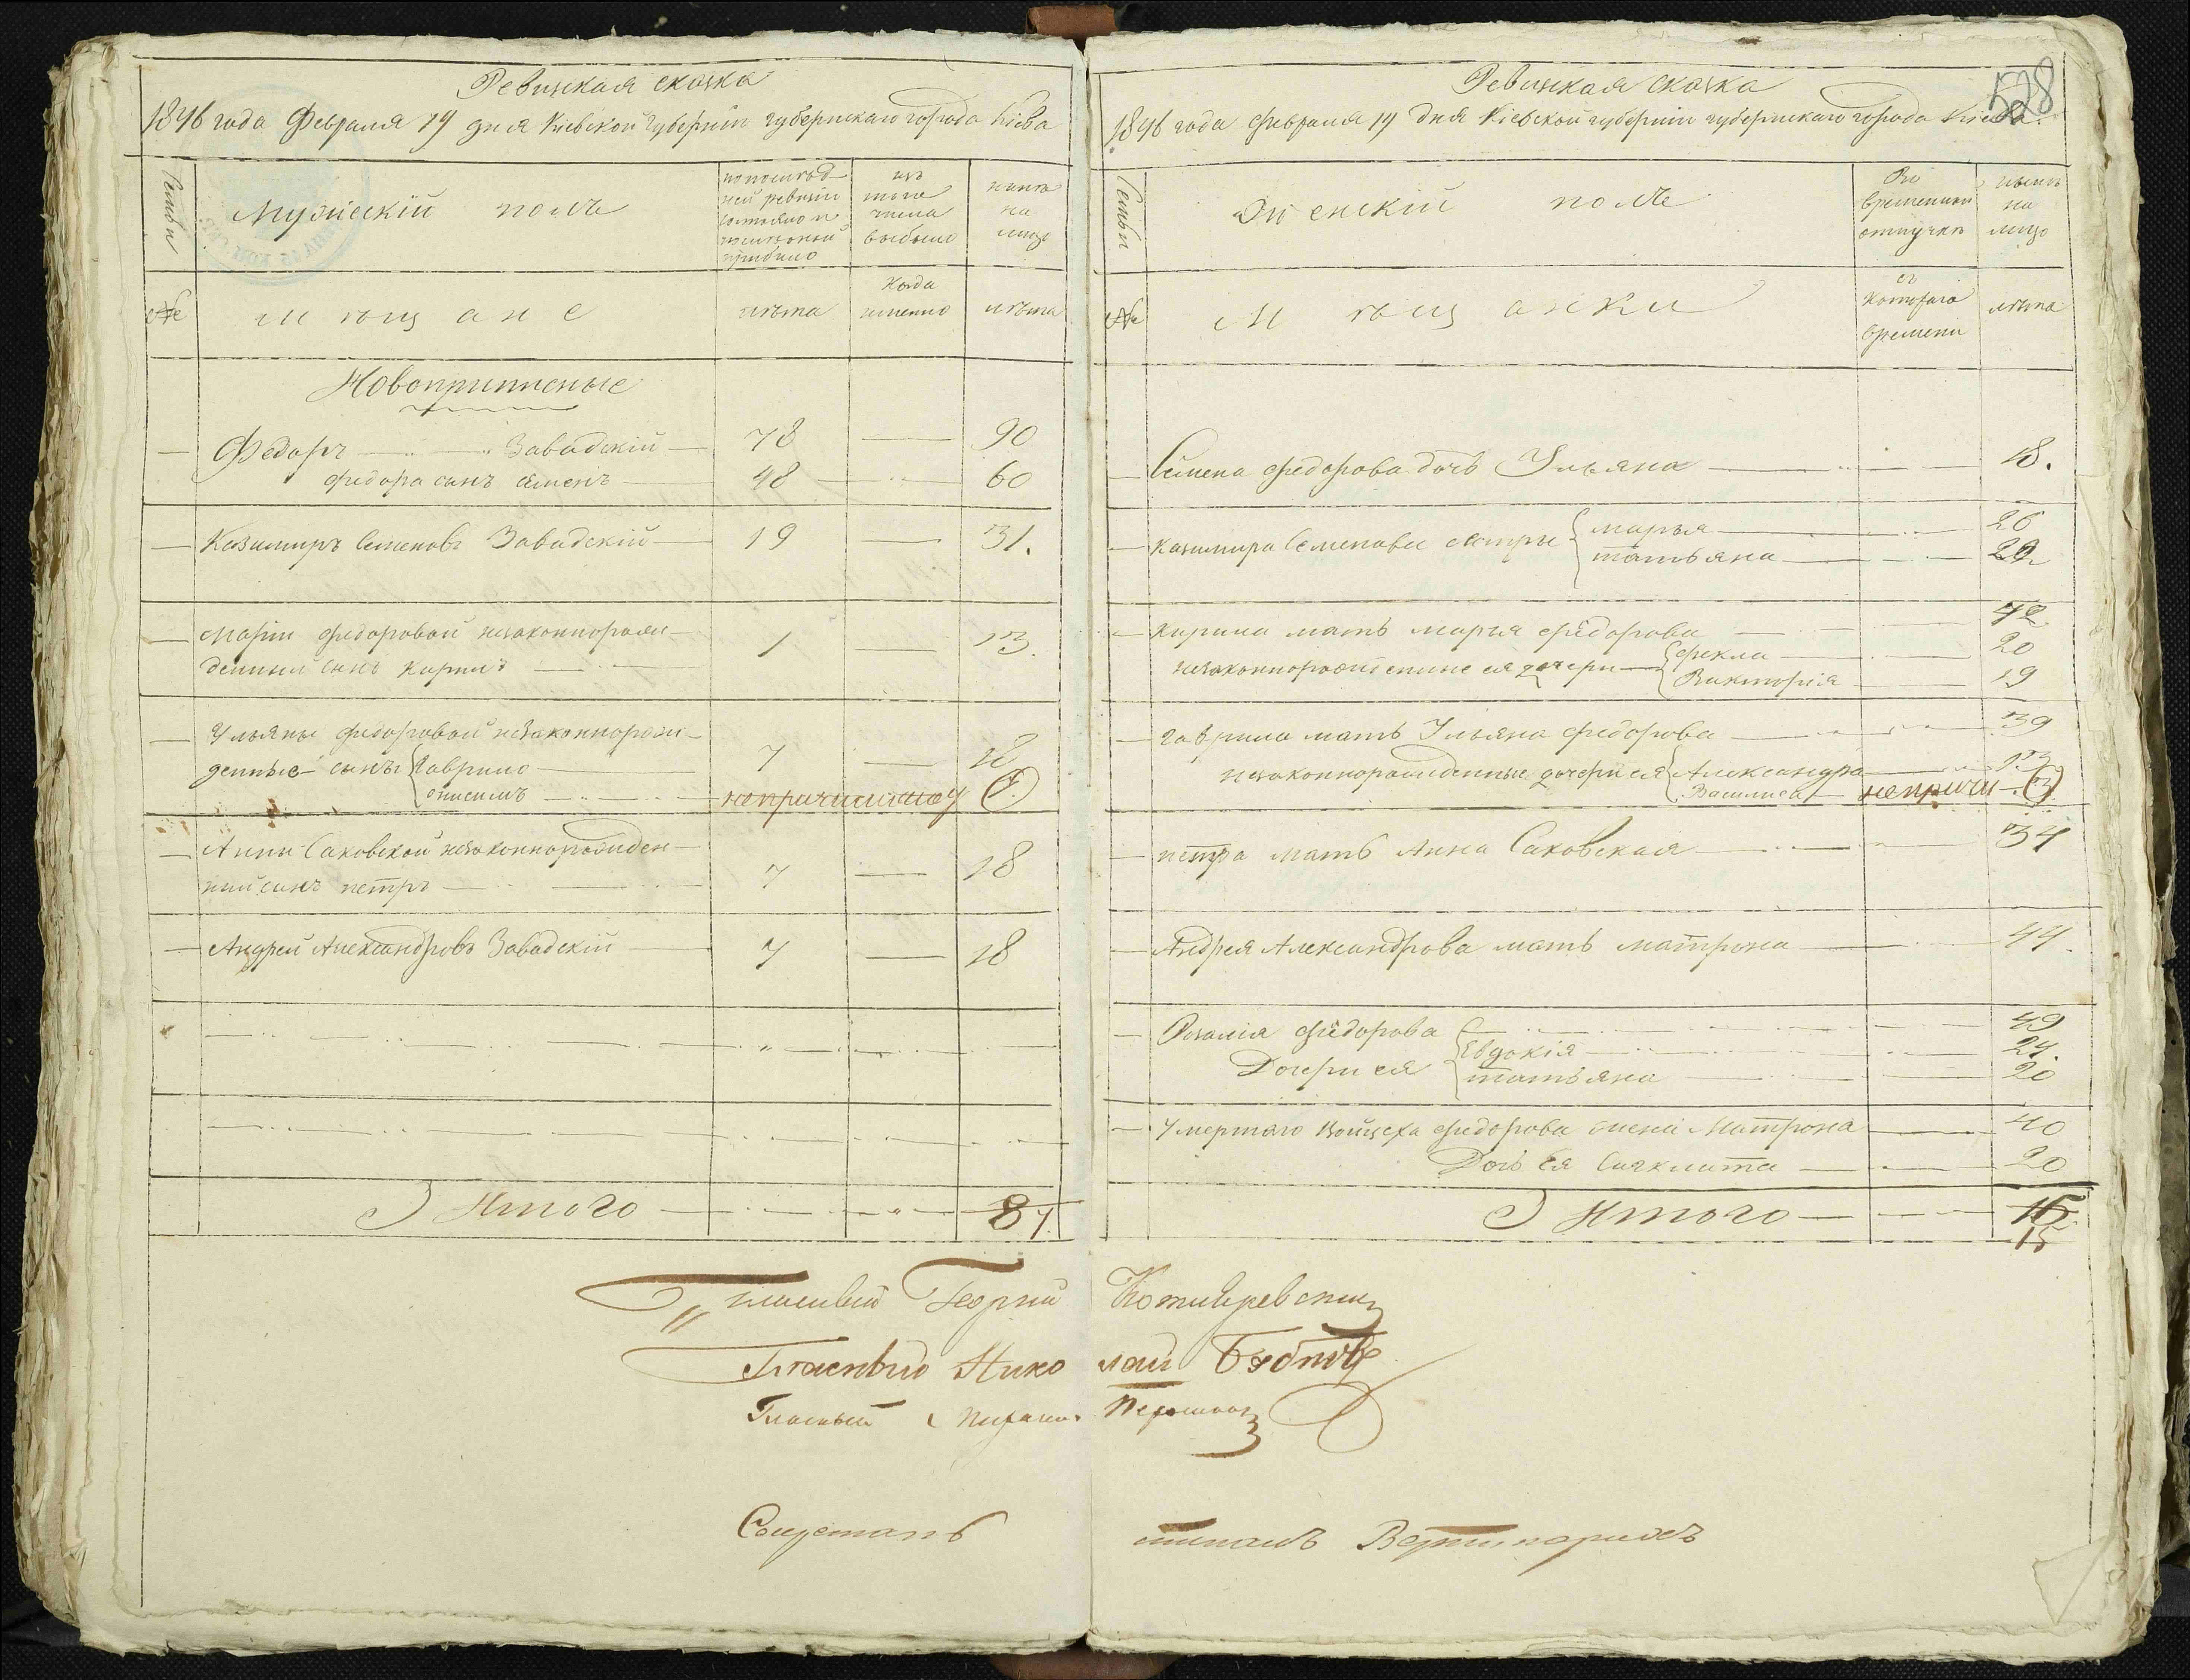 Ревизская сказка
1846 года Февраля 19 дня Кіевской Губерніи губернскаго города Кіева
Семьи
Мужескій полъ
по послѣд-
ней ревизіи
состояло и
послѣ оной
прибыло
изъ
того
числа
выбыло
нынѣ
на
лицо
№
мѣщане
лѣта
когда
именно
лѣта
Новоприписные
Федоръ Завадскій 78 90
Федора сынъ Семенъ 48 60
Казимиръ Семеновъ Завадскій 19 31.
Маріи Федоровой незаконнорож-
денный сынъ Кирилъ 1 13.
Ульяны Федоровой незаконнорож-
денные сынъ Гаврило 7 18
Онисимъ
Анны Саковской незаконнорожден-
ный сынъ Петръ 7 18
Андрей Александровъ Завадскій 7 18
Итого 8 7.
528
Ревизская сказка
1846 года Февраля 19 дня Кіевской губерніи губернскаго города Кіева.
Семьи
Женскій полъ
Во
временной
отлучкѣ
нынѣ
на
лицо
№
мѣщанки
съ
котораго
времени
лѣта
Семена Федорова дочь Ульяна 18.
Казимира Семенова сестры Марья 26
Татьяна 22
Кирила мать Марья Федорова 42
незаконнорожденные ея дочери Фекла 20
Викторія 19
Гаврила мать Ульяна Федорова 39
незаконнорожденные дочери ея Александра 13
Василиса неприч
Петра мать Анна Саковская 34
Андрея Александрова мать Матрона 44.
Розалія Федорова 49
Дочери ея Евдокія 24.
Татьяна 20
Умершаго Войцеха Федорова жена Матрона 40
Дочь Ея 20
Итого 16.
15
Гласный Георгій
Гласный Николай
Гласный